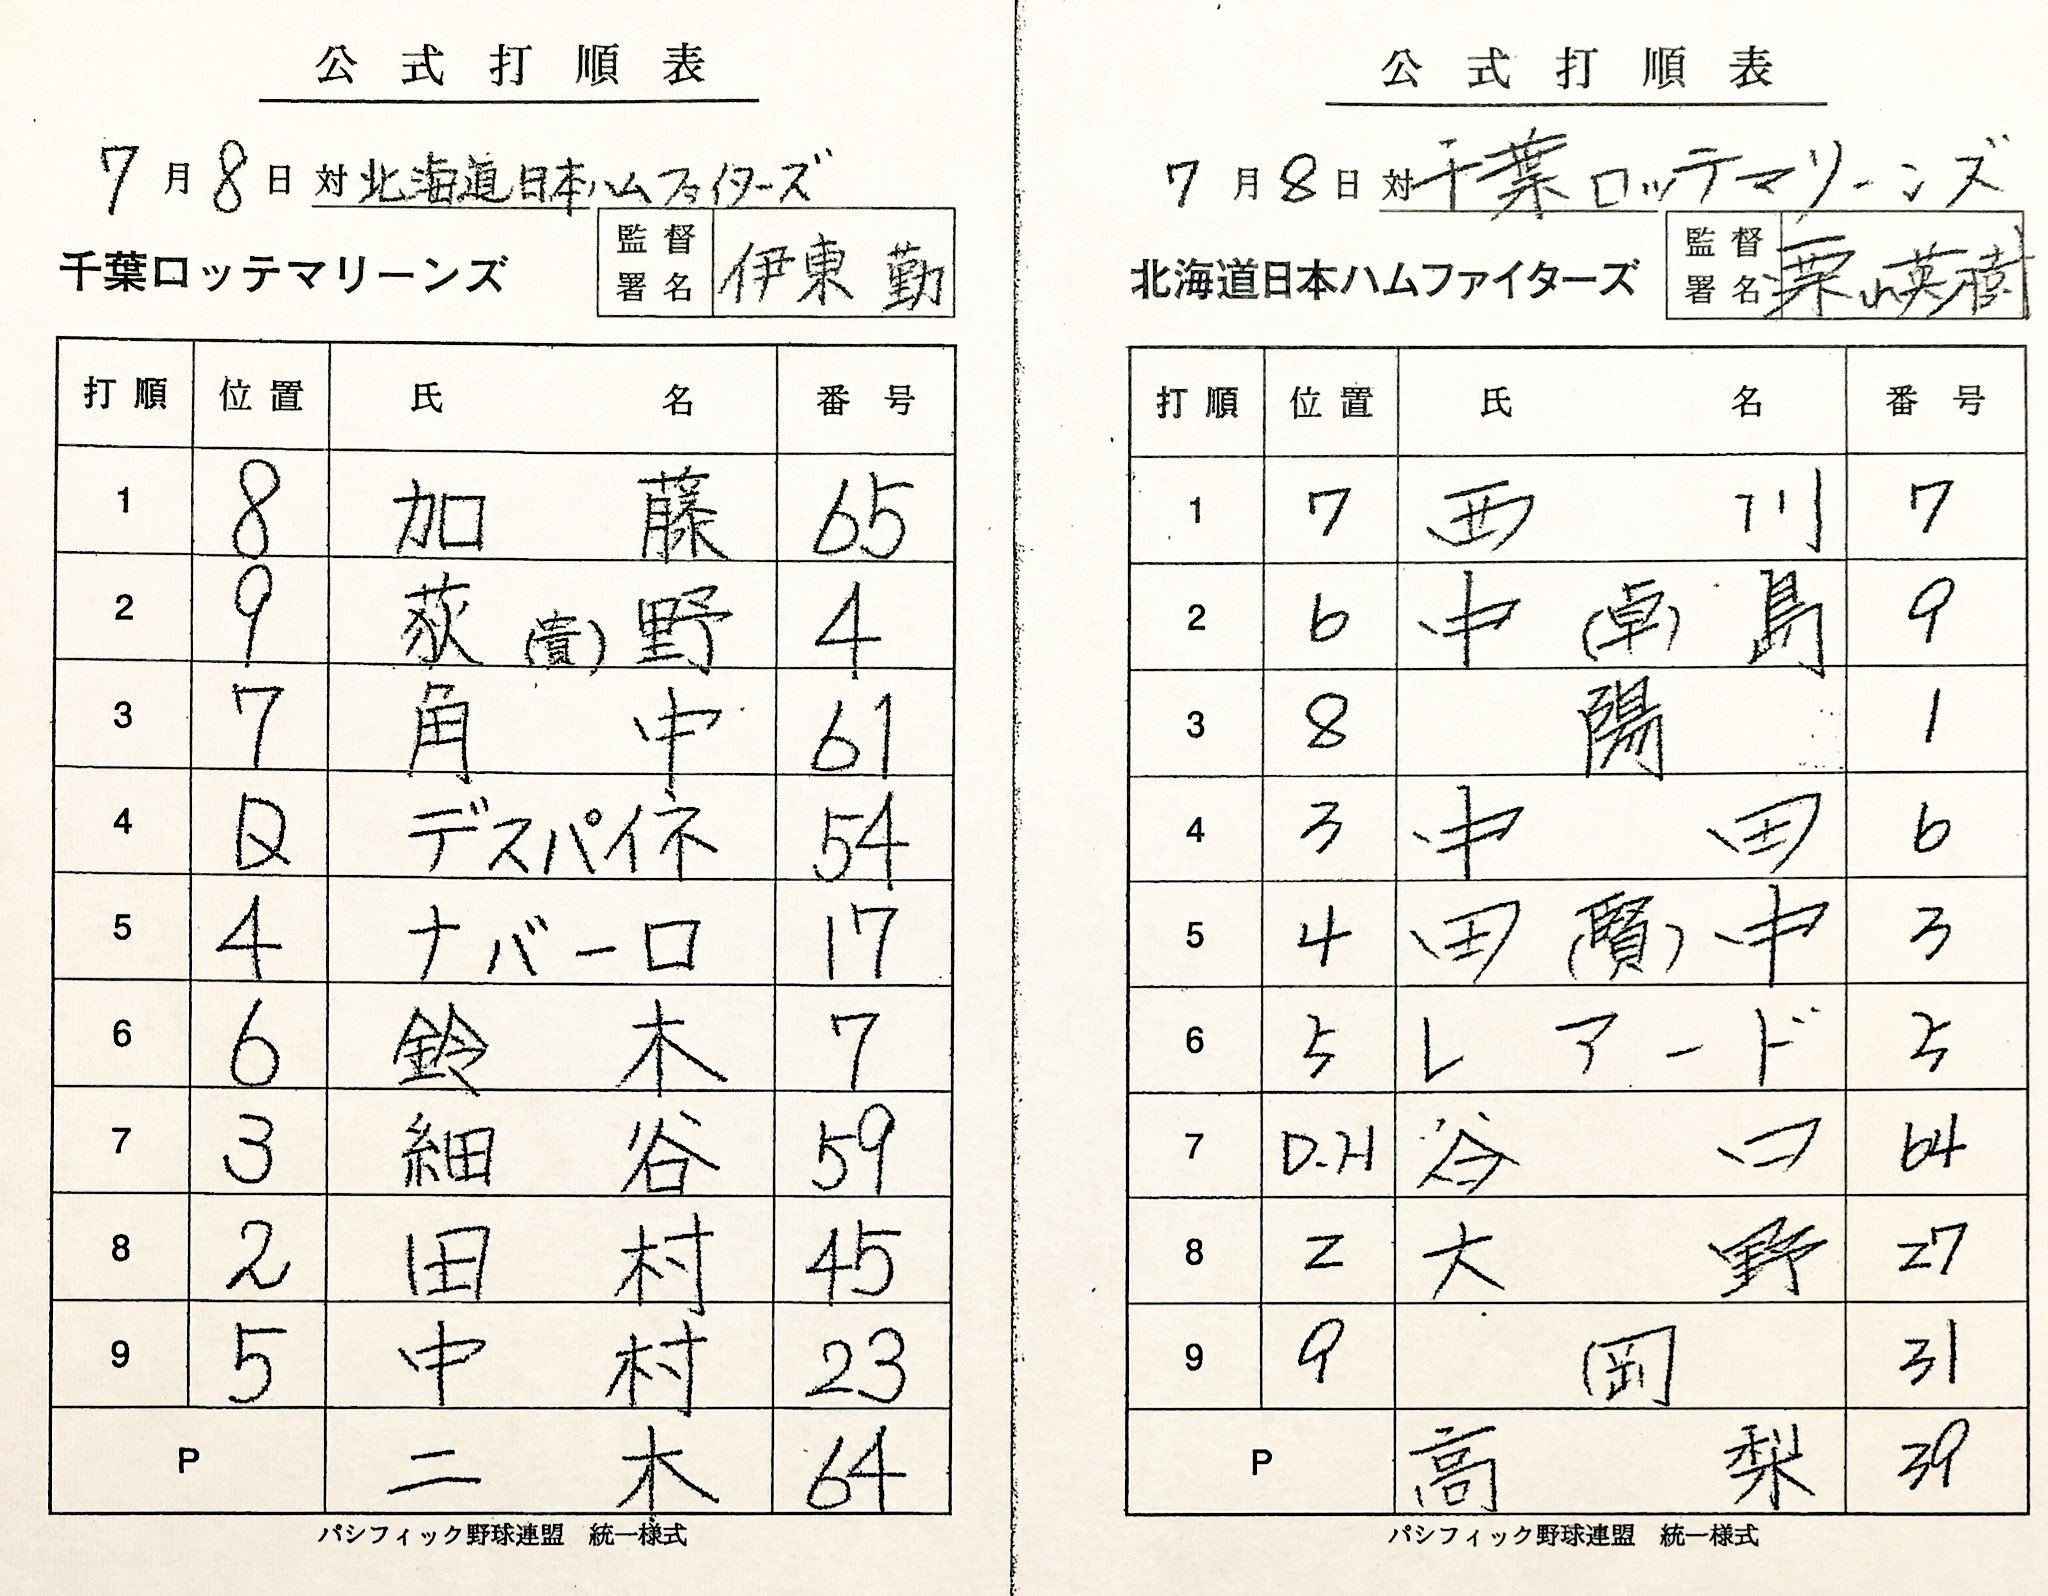 公式打順表
7月8日対北海道日本ハムファイターズ
千葉ロッテマリーンズ 監督署名 伊東勤
打順 位置 氏名 番号
1 8 加藤 65
2 9 荻(貴)野 4
3 7 角中 61
4 D デスパイネ 54
5 4 ナバーロ 17
6 6 鈴木 7
7 3 細谷 59
8 2 田村 45
9 5 中村 23
P 二木 64
パシフィック野球連盟 統一様式
公式打順表
7月8日対千葉ロッテマリーンズ
北海道日本ハムファイターズ 監督署名 栗山英樹
打順 位置 氏名 番号
1 7 西川 7
2 6 中(卓)島 9
3 8 陽 1
4 3 中田 6
5 4 田(賢)中 3
6 5 レアード 5
7 D.H 谷口 64
8 2 大野 27
9 9 岡 31
P 高梨 39
パシフィック野球連盟 統一様式